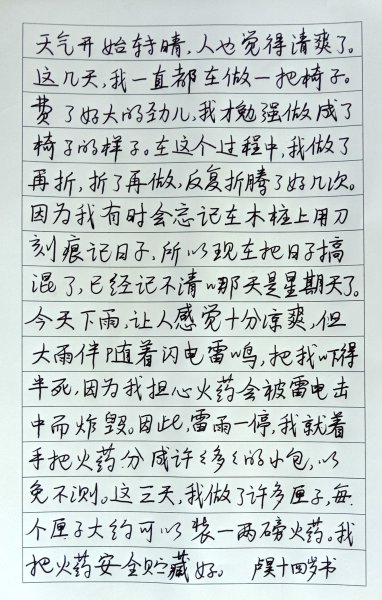 天气开始转晴，人也觉得清爽了。
这几天，我一直都在做一把椅子。
费了好大的劲儿，我才勉强做成了
椅子的样子。在这个过程中，我做了
再折，折了再做，反复折腾了好几次。
因为我有时会忘记在木桩上用刀
刻痕记日子，所以现在把日子搞
混了，已经记不清哪天是星期天了。
今天下雨，让人感觉十分凉爽，但
大雨伴随着闪电雷鸣，把我吓得
半死，因为我担心火药会被雷电击
中而炸毁。因此，雷雨一停，我就着
手把火药分成许许多多的小包，以
免不测。这三天，我做了许多匣子，每
个匣子大约可以装一两磅火药。我
把火药安全贮藏好。 卢昊十四岁书